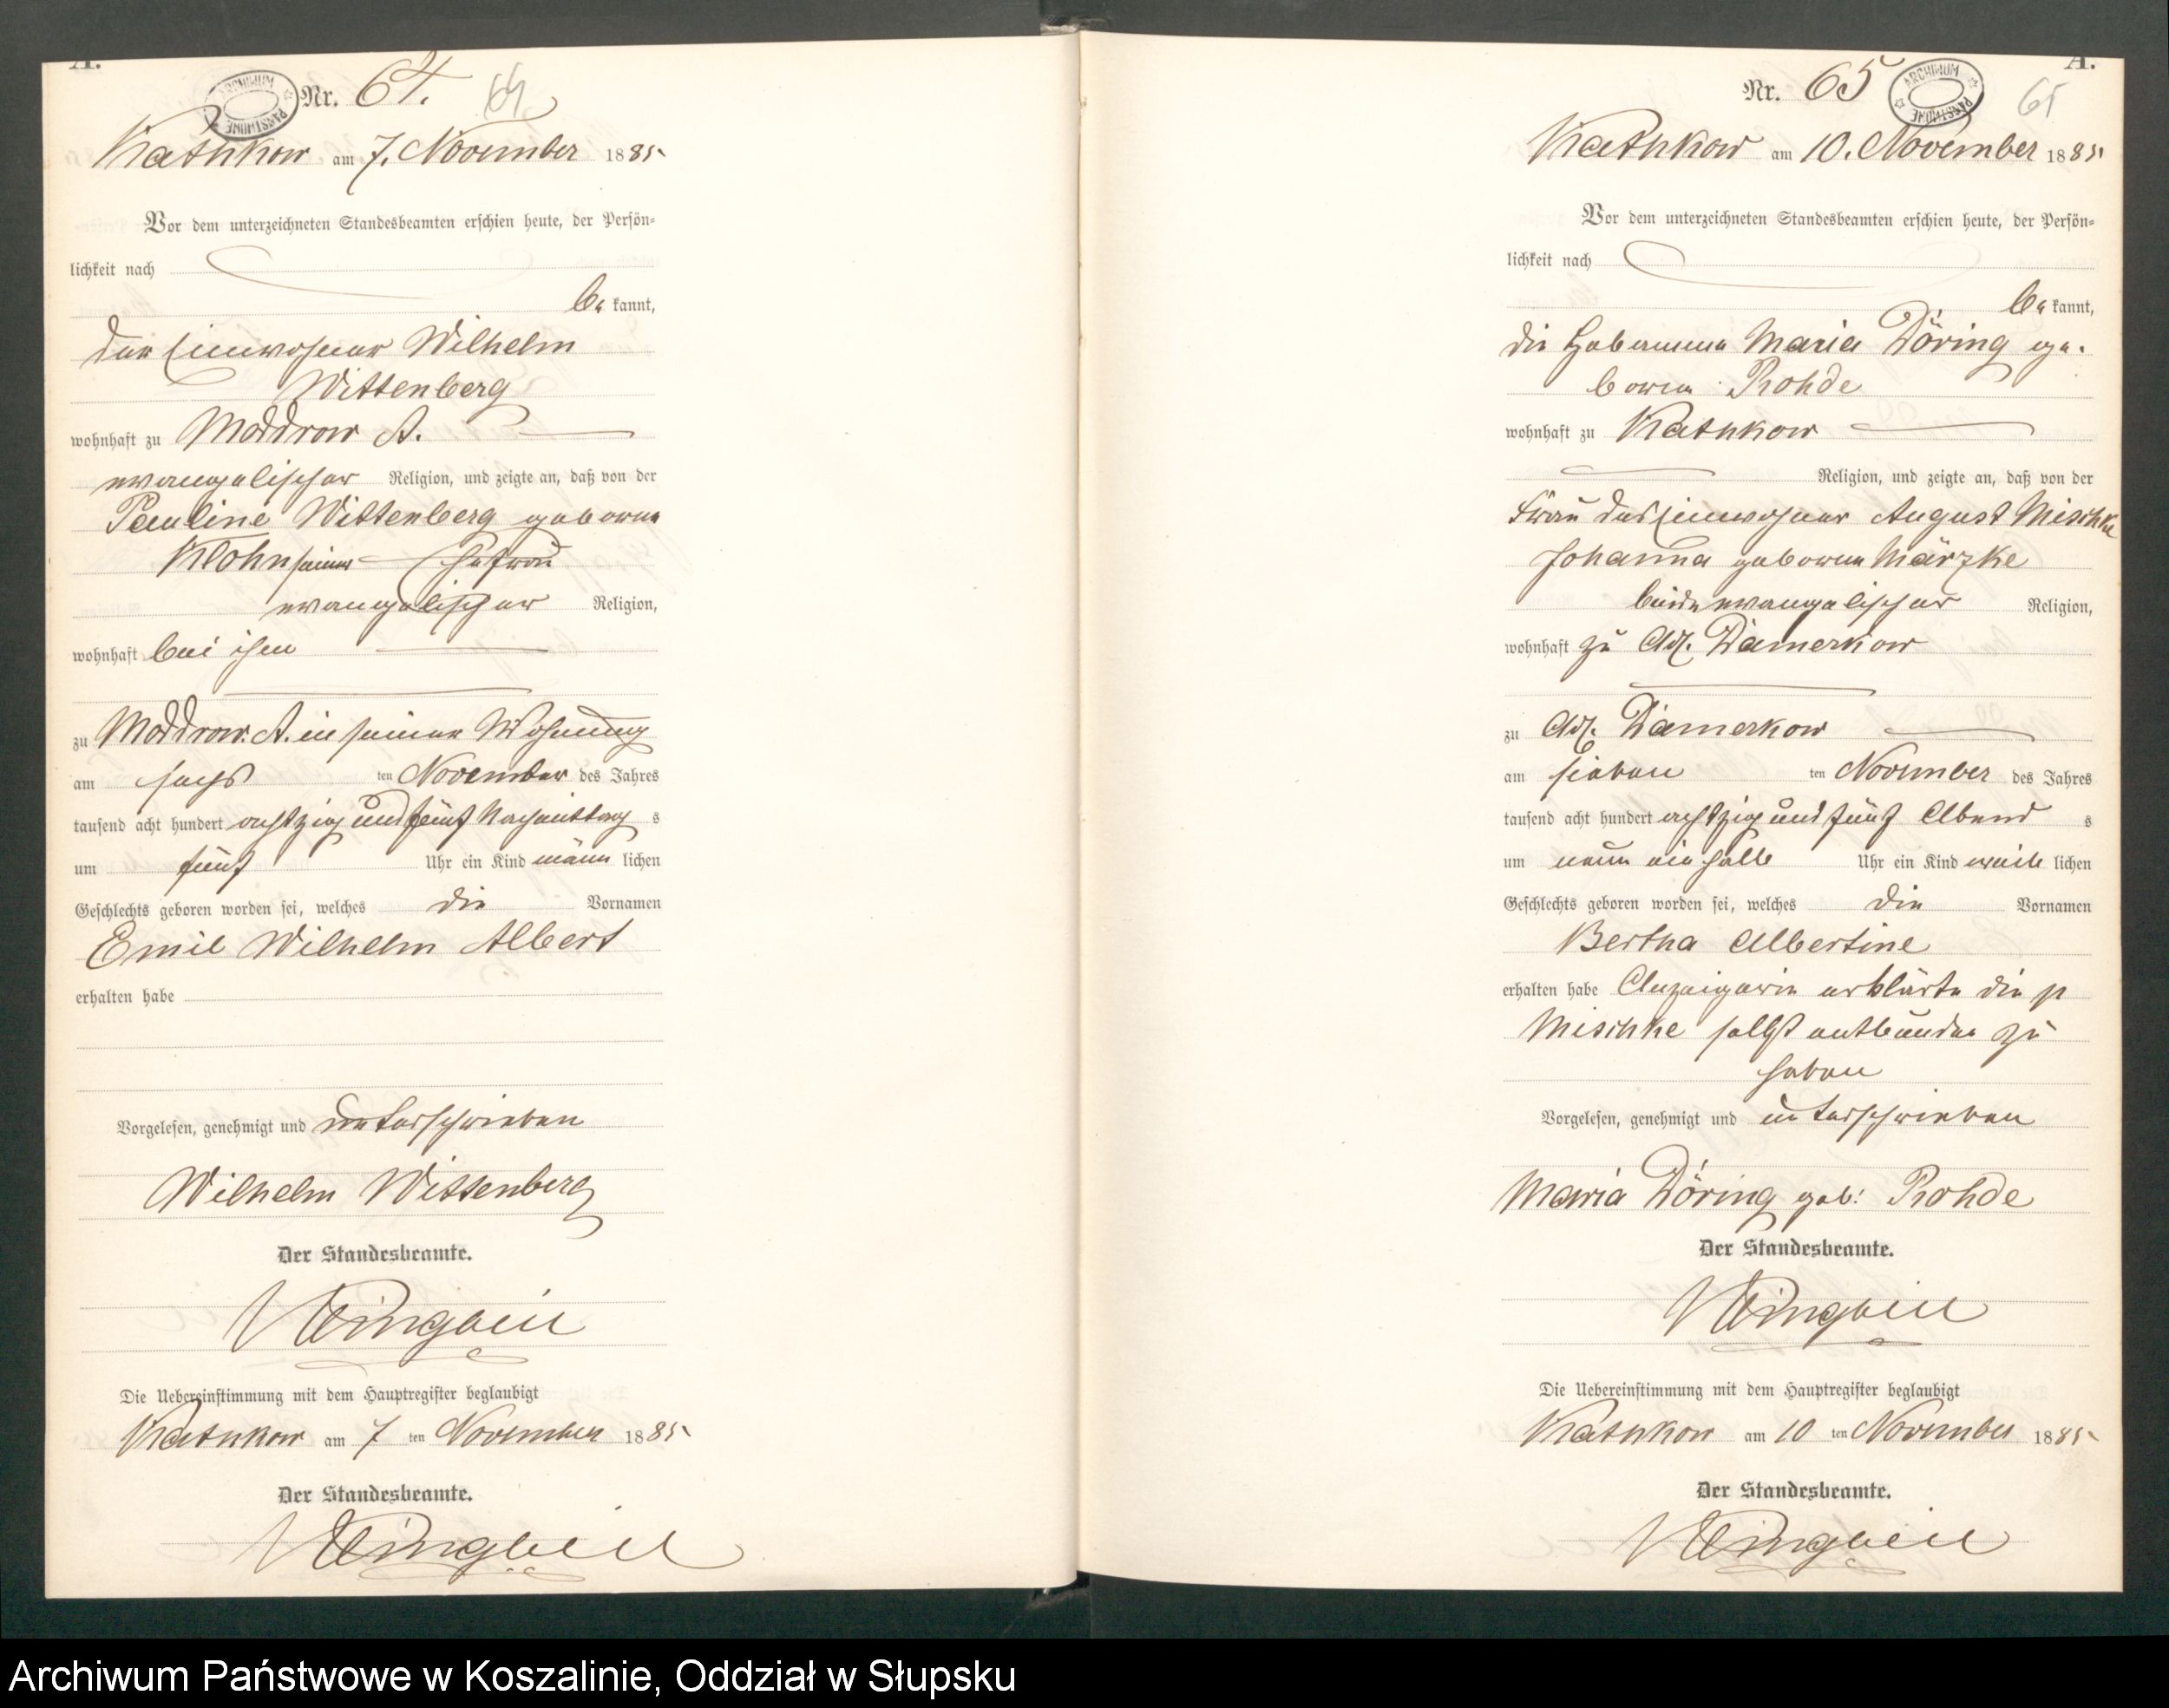 A.
Nr. 64. 64
Kathkow am 7. November 1885
Vor dem unterzeichneten Standesbeamten erschien heute, der Persön-
lichkeit nach
be kannt,
der Einwohner Wilhelm
Wittenberg
wohnhaft zu Moddrow A.
evangelischer Religion, und zeigte an, daß von der
Pauline Wittenberg geborene
Klohn seiner Ehefrau
evangelischer Religion,
wohnhaft bei ihm
zu Moddrow A. in seiner Wohnung
am sechs ten November des Jahres
tausend acht hundert achtzig und fünf Nachmittag s
um fünf Uhr ein Kind männ lichen
Geschlechts geboren worden sei, welches die Vornamen
Emil Wilhelm Albert
erhalten habe
Vorgelesen, genehmigt und unterschrieben
Wilhelm Wittenberg
Der Standesbeamte.
Die Uebereinstimmung mit dem Hauptregister beglaubigt
Kathkow am 7 ten November 1885
Der Standesbeamte.
A.
Nr. 65 65
ARCHIWUM PAŃSTWOWE
Kathkow am 10. November 1885
Vor dem unterzeichneten Standesbeamten erschien heute, der Persön-
lichkeit nach
be kannt,
die Hebamme Maria Döring ge-
borene Rohde
wohnhaft zu Kathkow
Religion, und zeigte an, daß von der
Frau des Einwohner August Mischke
Johanna geborene Märzke
beide evangelischer Religion,
wohnhaft zu Adl. Damerkow
zu Adl. Damerkow
am sieben ten November des Jahres
tausend acht hundert achtzig und fünf Abend s
um neun ein halb Uhr ein Kind weib lichen
Geschlechts geboren worden sei, welches die Vornamen
Bertha Albertine
erhalten habe Anzeigerin erklärte die p
Mischke selbst entbunden zu
haben
Vorgelesen, genehmigt und unterschrieben
Maria Döring geb: Rohde
Der Standesbeamte.
Die Uebereinstimmung mit dem Hauptregister beglaubigt
Kathkow am 10 ten November 1885
Der Standesbeamte.
Archiwum Państwowe w Koszalinie, Oddział w Słupsku